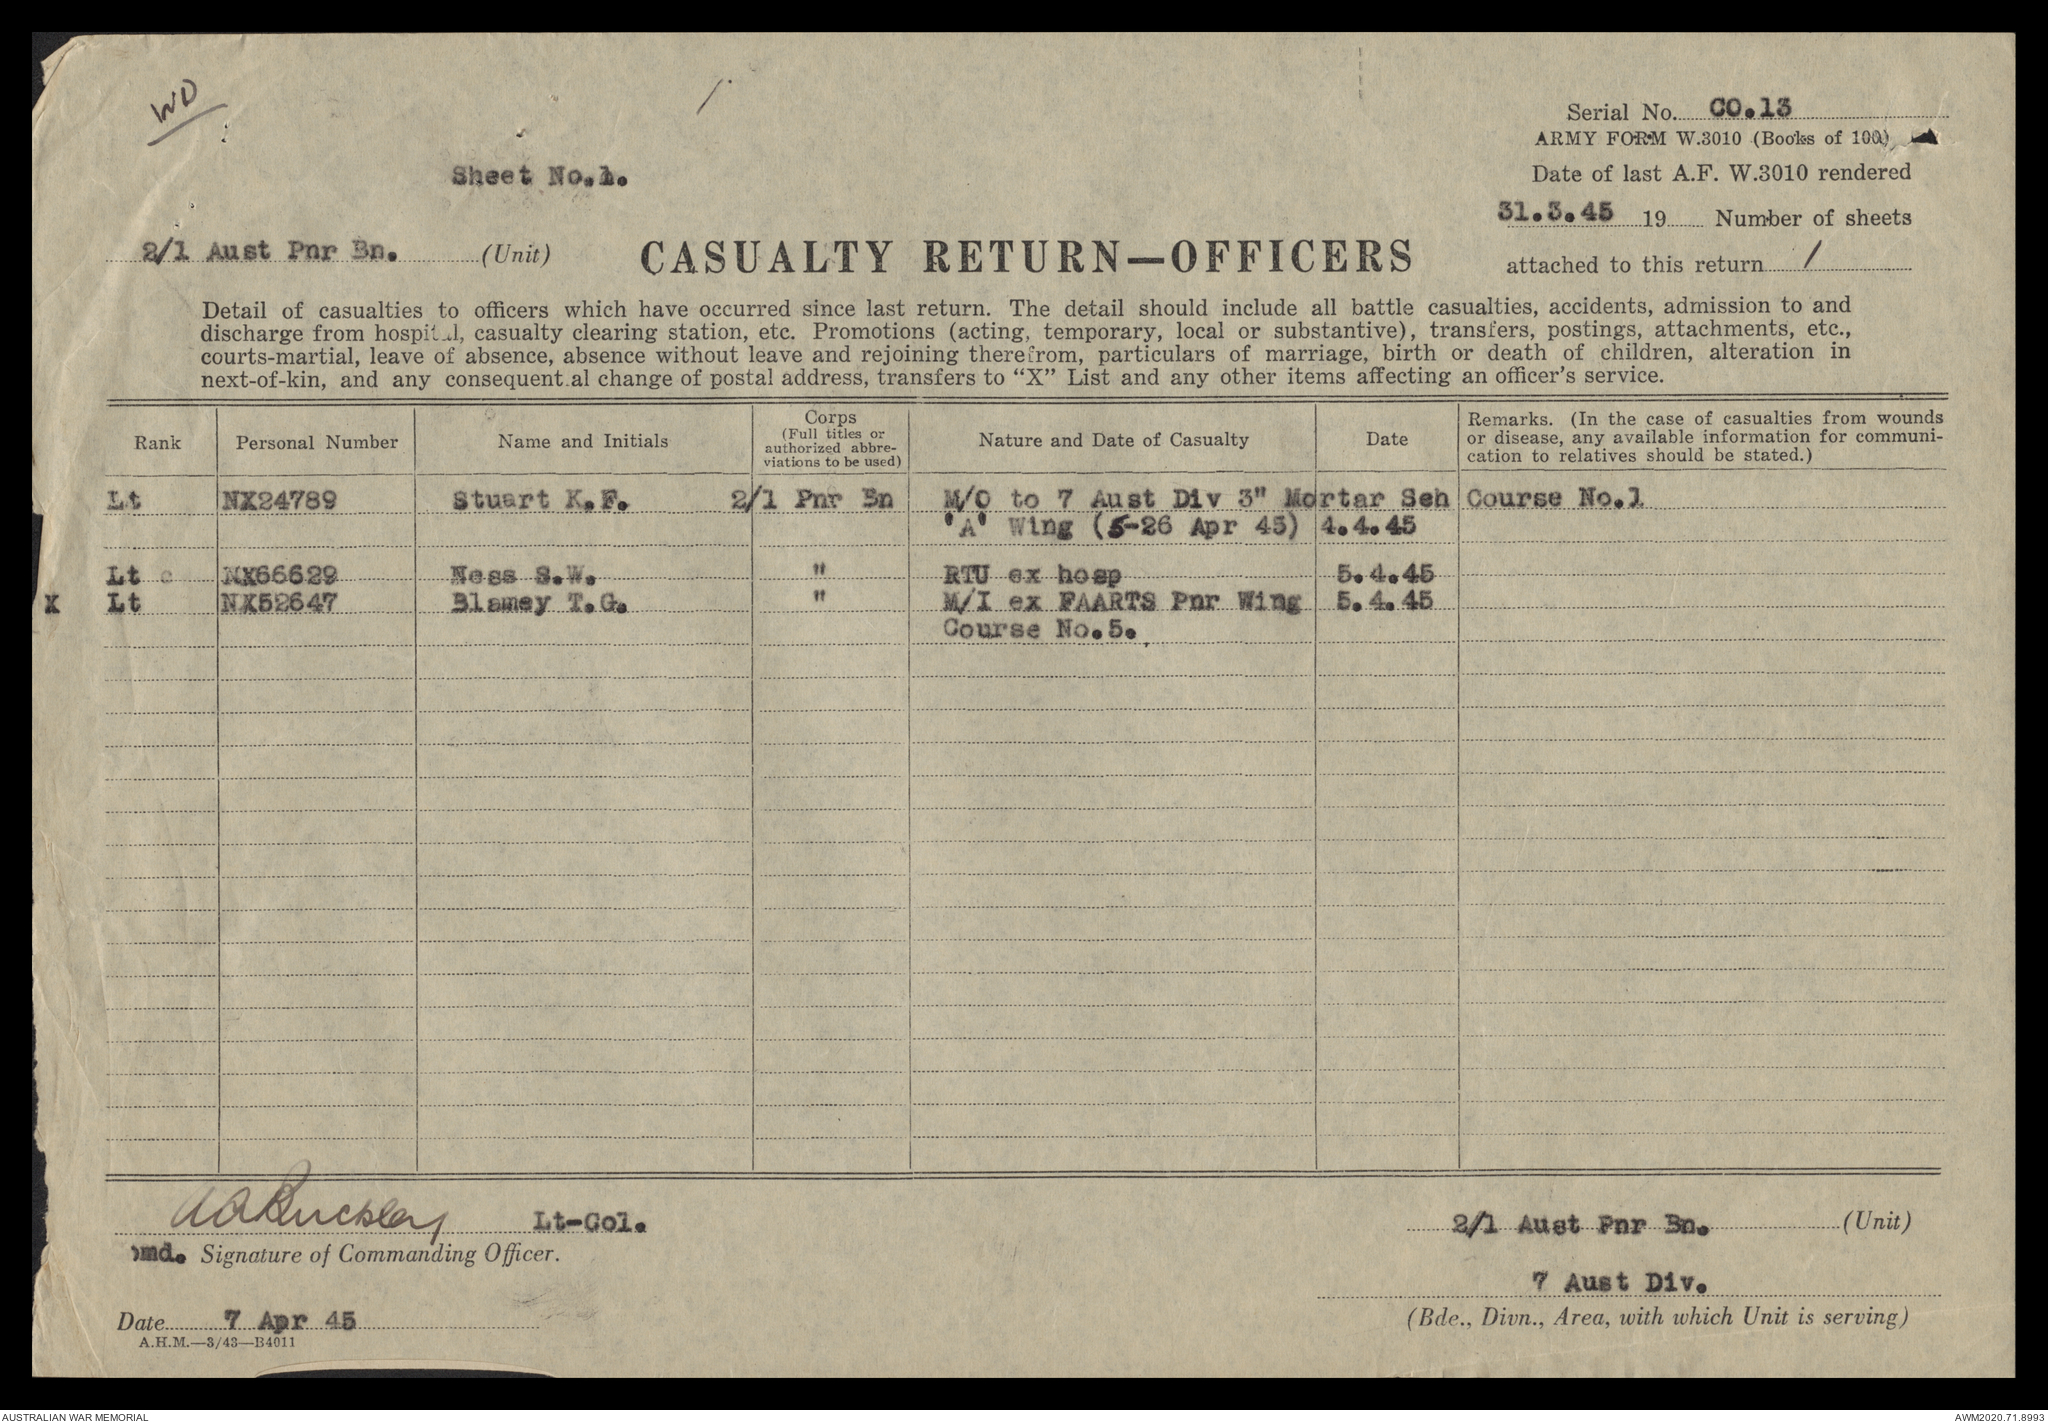 WD
/
Serial No. CO.13
ARMY FORM W.3010 (Books of 100)
Sheet No.1.
Date of last A.F. W.3010 rendered
31.3.45 19 Number of sheets
2/1 Aust Pnr Bn. (Unit) CASUALTY RETURN—OFFICERS
attached to this return 1
Detail of casualties to officers which have occurred since last return. The detail should include all battle casualties, accidents, admission to and
discharge from hospital, casualty clearing station, etc. Promotions (acting, temporary, local or substantive), transfers, postings, attachments, etc.,
courts-martial, leave of absence, absence without leave and rejoining therefrom, particulars of marriage, birth or death of children, alteration in
next-of-kin, and any consequent.al change of postal address, transfers to “X” List and any other items affecting an officer's service.
Rank
Personal Number
Name and Initials
Corps
(Full titles or
authorized abbre-
viations to be used)
Nature and Date of Casualty
Date
Remarks. (In the case of casualties from wounds
or disease, any available information for communi-
cation to relatives should be stated.)
Lt NX24789 Stuart K.F. 2/1 Pnr Bn M/O to 7 Aust Div 3" Mortar Sch Course No.1
'A' Wing (5-26 Apr 45) 4.4.45
Lt NX66629 Ness S.W. " RTU ex hosp 5.4.45
X Lt NX52647 Blamey T.G. " M/I ex FAARTS Pnr Wing 5.4.45
Course No.5.
AABuckley Lt-Col.
omd. Signature of Commanding Officer.
2/1 Aust Pnr Bn. (Unit)
7 Aust Div.
(Bde., Divn., Area, with which Unit is serving)
Date 7 Apr 45
A.H.M.—3/43—B4011
AUSTRALIAN WAR MEMORIAL
AWM2020.71.8993